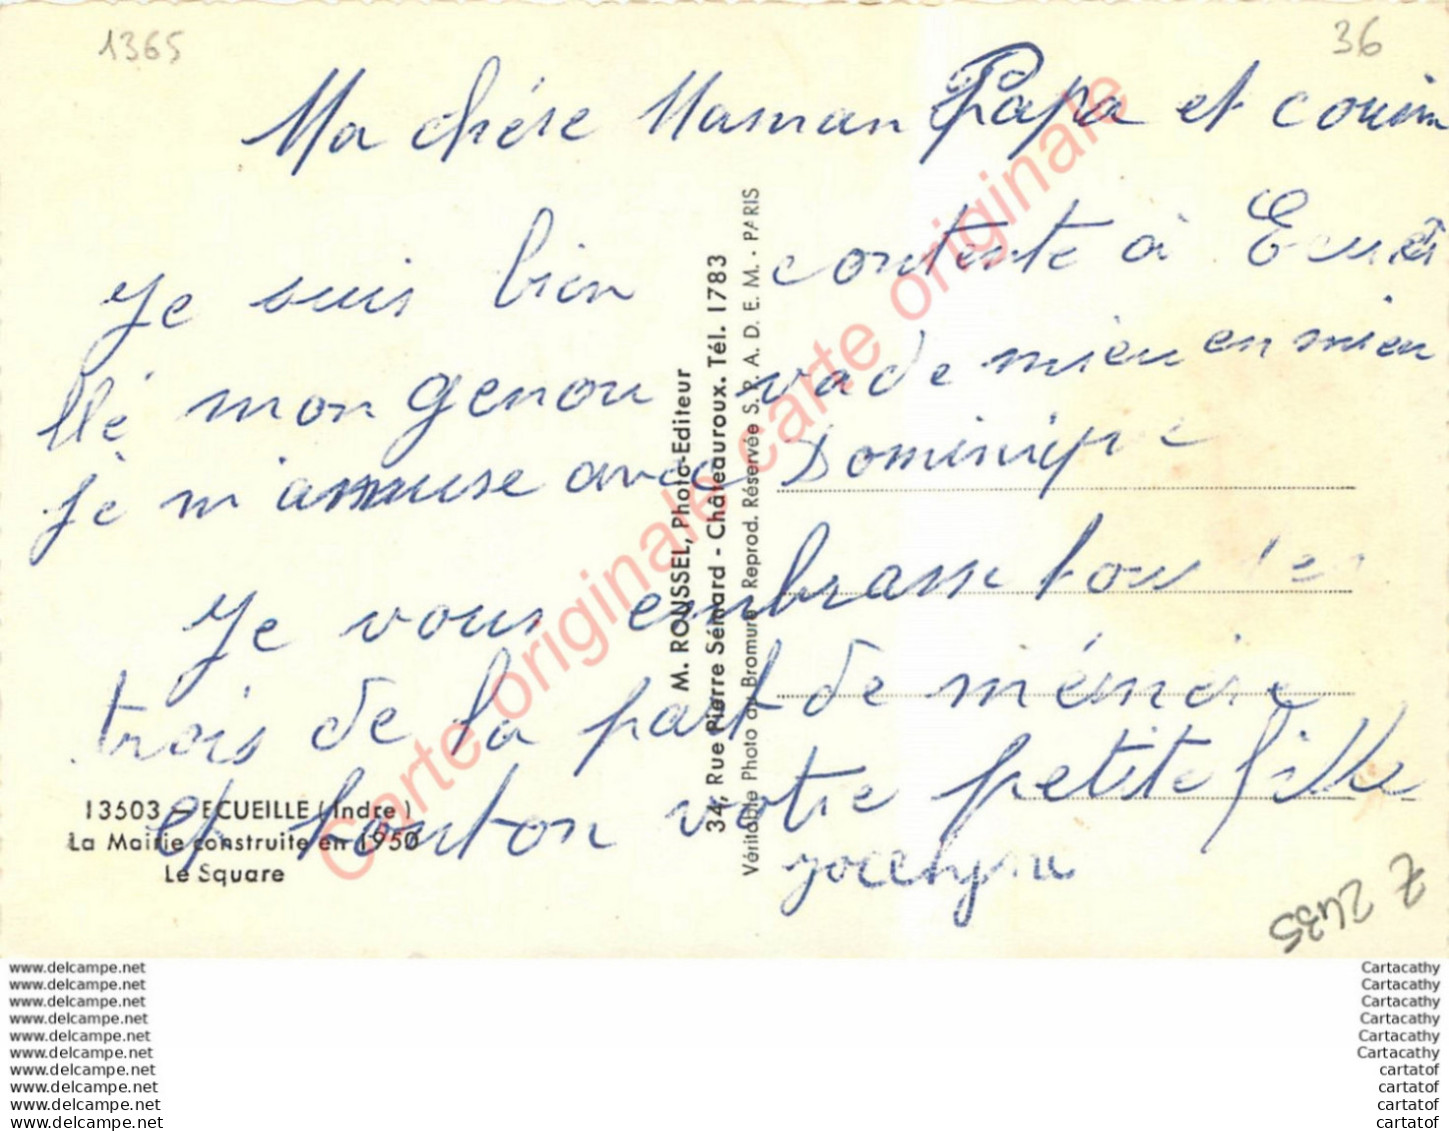 1365
36
Ma chère Maman Papa et
Je suis bien contente à Ecuei
llé mon genou va de mieu en mieu
je m'amuse avec Dominique
Je vous embrasse tou les
trois de la part de mémère
et tonton votre petite fille
jocelyne
13503 - ECUEILLE (Indre)
La Mairie construite en 1950
Le Square
M. ROUSSEL, Photo-Editeur
34, Rue Pierre Sémard - Châteauroux. Tél. 1783
Véritable Photo au Bromure Reprod. Réservée S. P. A. D. E. M. - PARIS
Carte originale carte originale
Z 2435
www.delcampe.net
www.delcampe.net
www.delcampe.net
www.delcampe.net
www.delcampe.net
www.delcampe.net
www.delcampe.net
www.delcampe.net
www.delcampe.net
www.delcampe.net
Cartacathy
Cartacathy
Cartacathy
Cartacathy
Cartacathy
Cartacathy
cartatof
cartatof
cartatof
cartatof